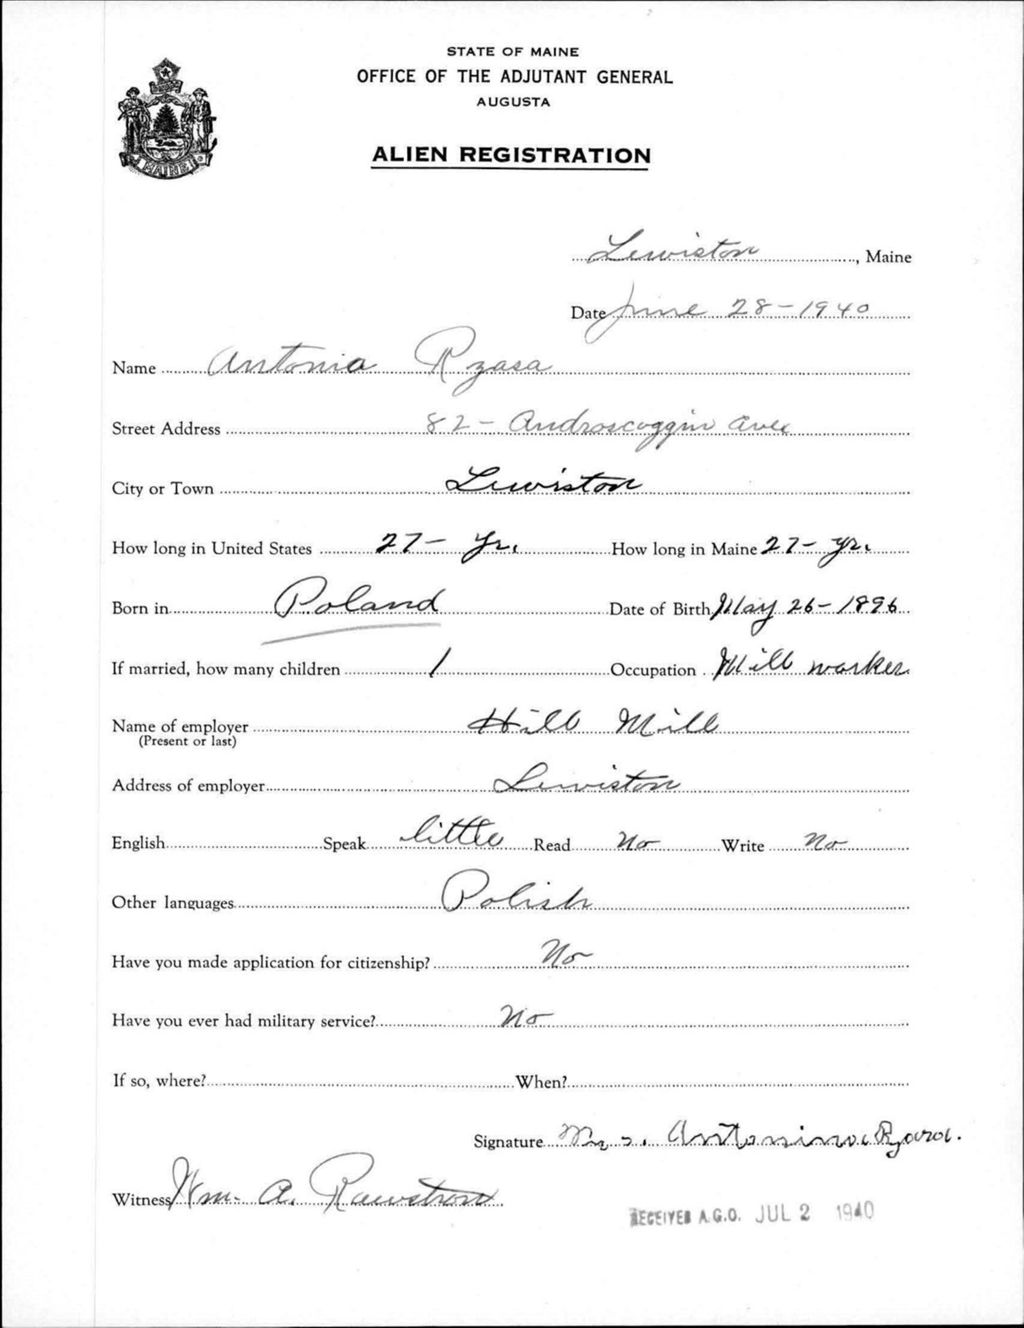 STATE OF MAINE
OFFICE OF THE ADJUTANT GENERAL
AUGUSTA
ALIEN REGISTRATION
MAINE
Lewiston, Maine
Date June 28-1940
Name Antonia Rzasa
Street Address 82- Androscoggin Ave
City or Town Lewiston
How long in United States 27- Yr. How long in Maine 27- yr.
Born in Poland Date of Birth May 26-1896
If married, how many children 1 Occupation Mill worker
Name of employer Hill Mill
(Present or last)
Address of employer Lewiston
English Speak little Read No Write No
Other languages Polish
Have you made application for citizenship? No
Have you ever had military service? No
If so, where? When?
Signature Mrs. Antonina
Witness Wm. A. Rawstron
RECEIVED A.G.O. JUL 2 1940